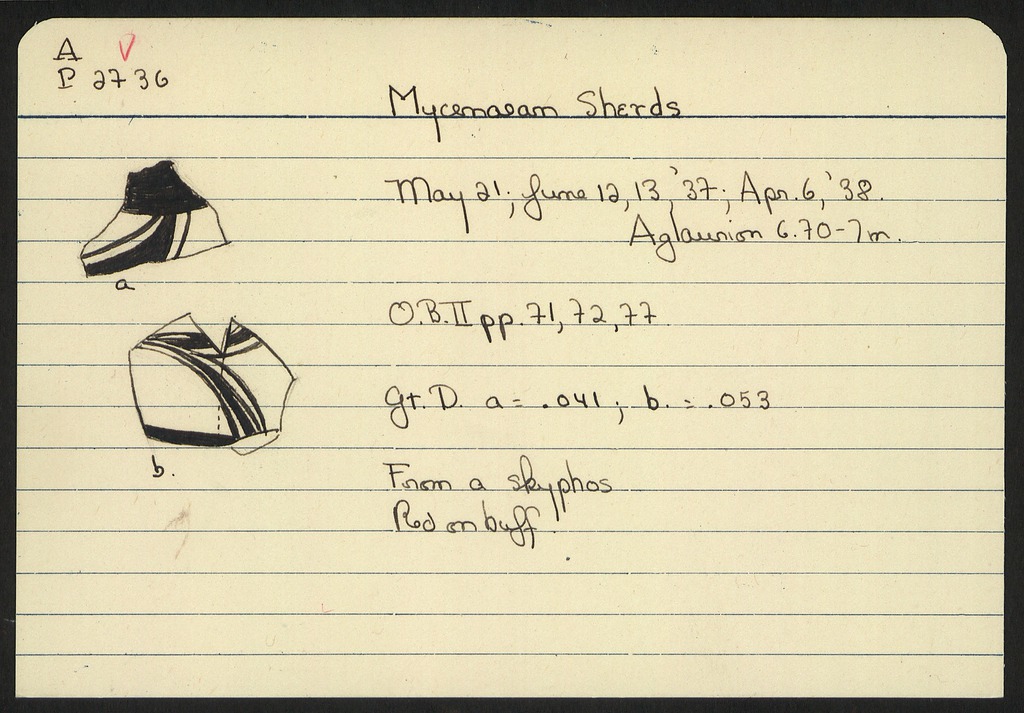 A V
P 2736
Mycenaean Sherds
May 21; June 12, 13, '37; Apr. 6, '38.
Aglaurion 6.70-7m.
a
O.B. II pp. 71, 72, 77
Gt. D. a = .041; b. = .053
b.
From a skyphos
Red on buff.